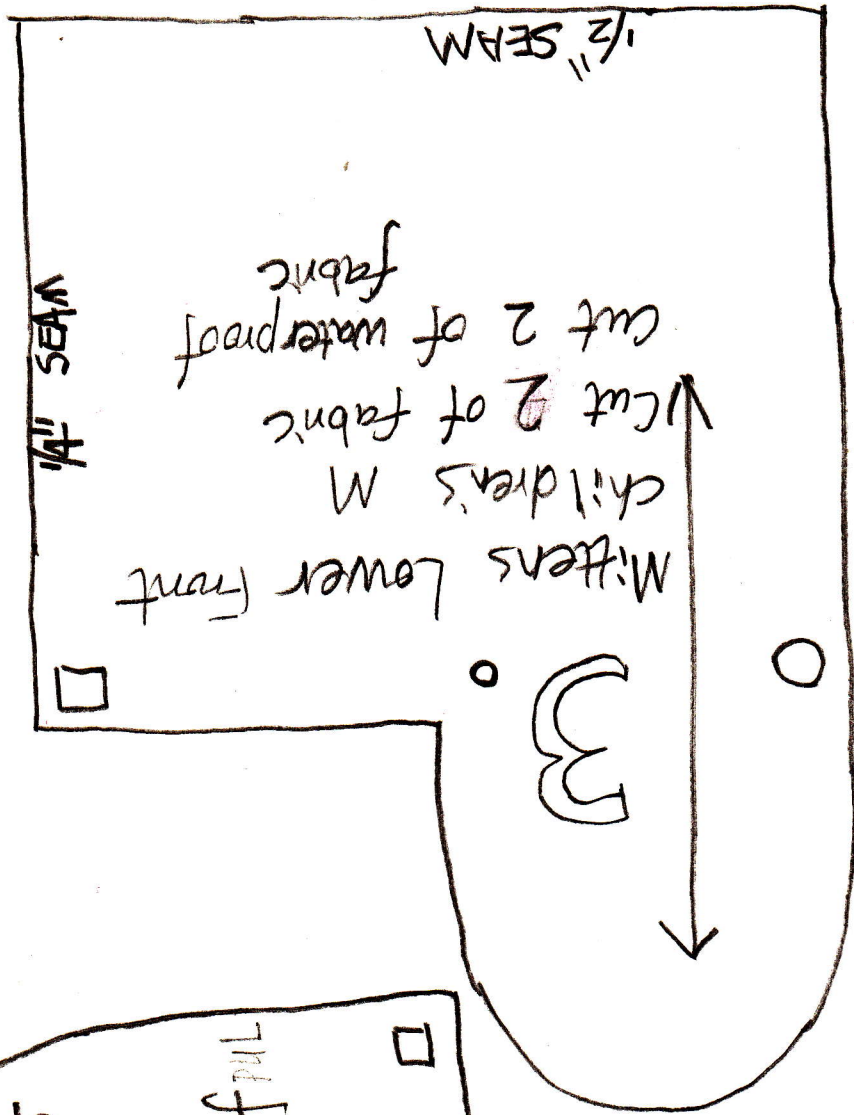 3
Mittens Lower Front
children's M
Cut 2 of fabric
Cut 2 of waterproof
fabric
1/2" SEAM
1/4" SEAM
f PUL